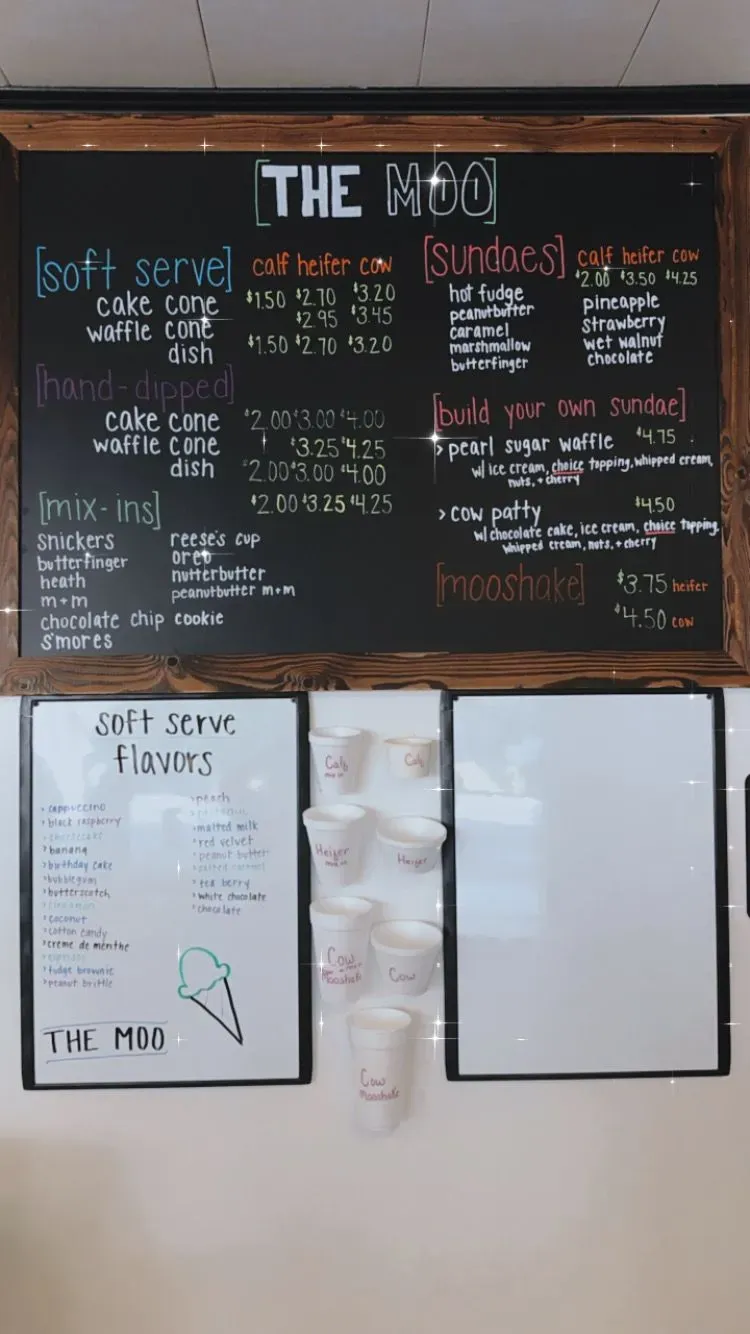 [THE MOO]
[soft serve] calf heifer cow
cake cone $1.50 $2.70 $3.20
waffle cone $2.95 $3.45
dish $1.50 $2.70 $3.20
[hand-dipped]
cake cone $2.00 $3.00 $4.00
waffle cone $3.25 $4.25
dish $2.00 $3.00 $4.00
[mix-ins] $2.00 $3.25 $4.25
snickers
butterfinger
heath
m+m
chocolate chip cookie
s'mores
reese's cup
oreo
nutterbutter
peanutbutter m+m
[sundaes] calf heifer cow
$2.00 $3.50 $4.25
hot fudge
peanutbutter
caramel
marshmallow
butterfinger
pineapple
strawberry
wet walnut
chocolate
[build your own sundae]
> pearl sugar waffle $4.75
w/ ice cream, choice topping, whipped cream,
nuts, + cherry
> cow patty $4.50
w/ chocolate cake, ice cream, choice topping,
whipped cream, nuts, + cherry
[mooshake] $3.75 heifer
$4.50 cow
soft serve
flavors
> cappuccino
> black raspberry
> cheesecake
> banana
> birthday cake
> bubblegum
> butterscotch
> cinnamon
> coconut
> cotton candy
> creme de menthe
> espresso
> fudge brownie
> peanut brittle
> peach
> malted milk
> red velvet
> peanut butter
> salted caramel
> tea berry
> white chocolate
> chocolate
THE MOO
Calf
Calf
Heifer
Heifer
Cow
Mooshake
Cow
Cow
Mooshake